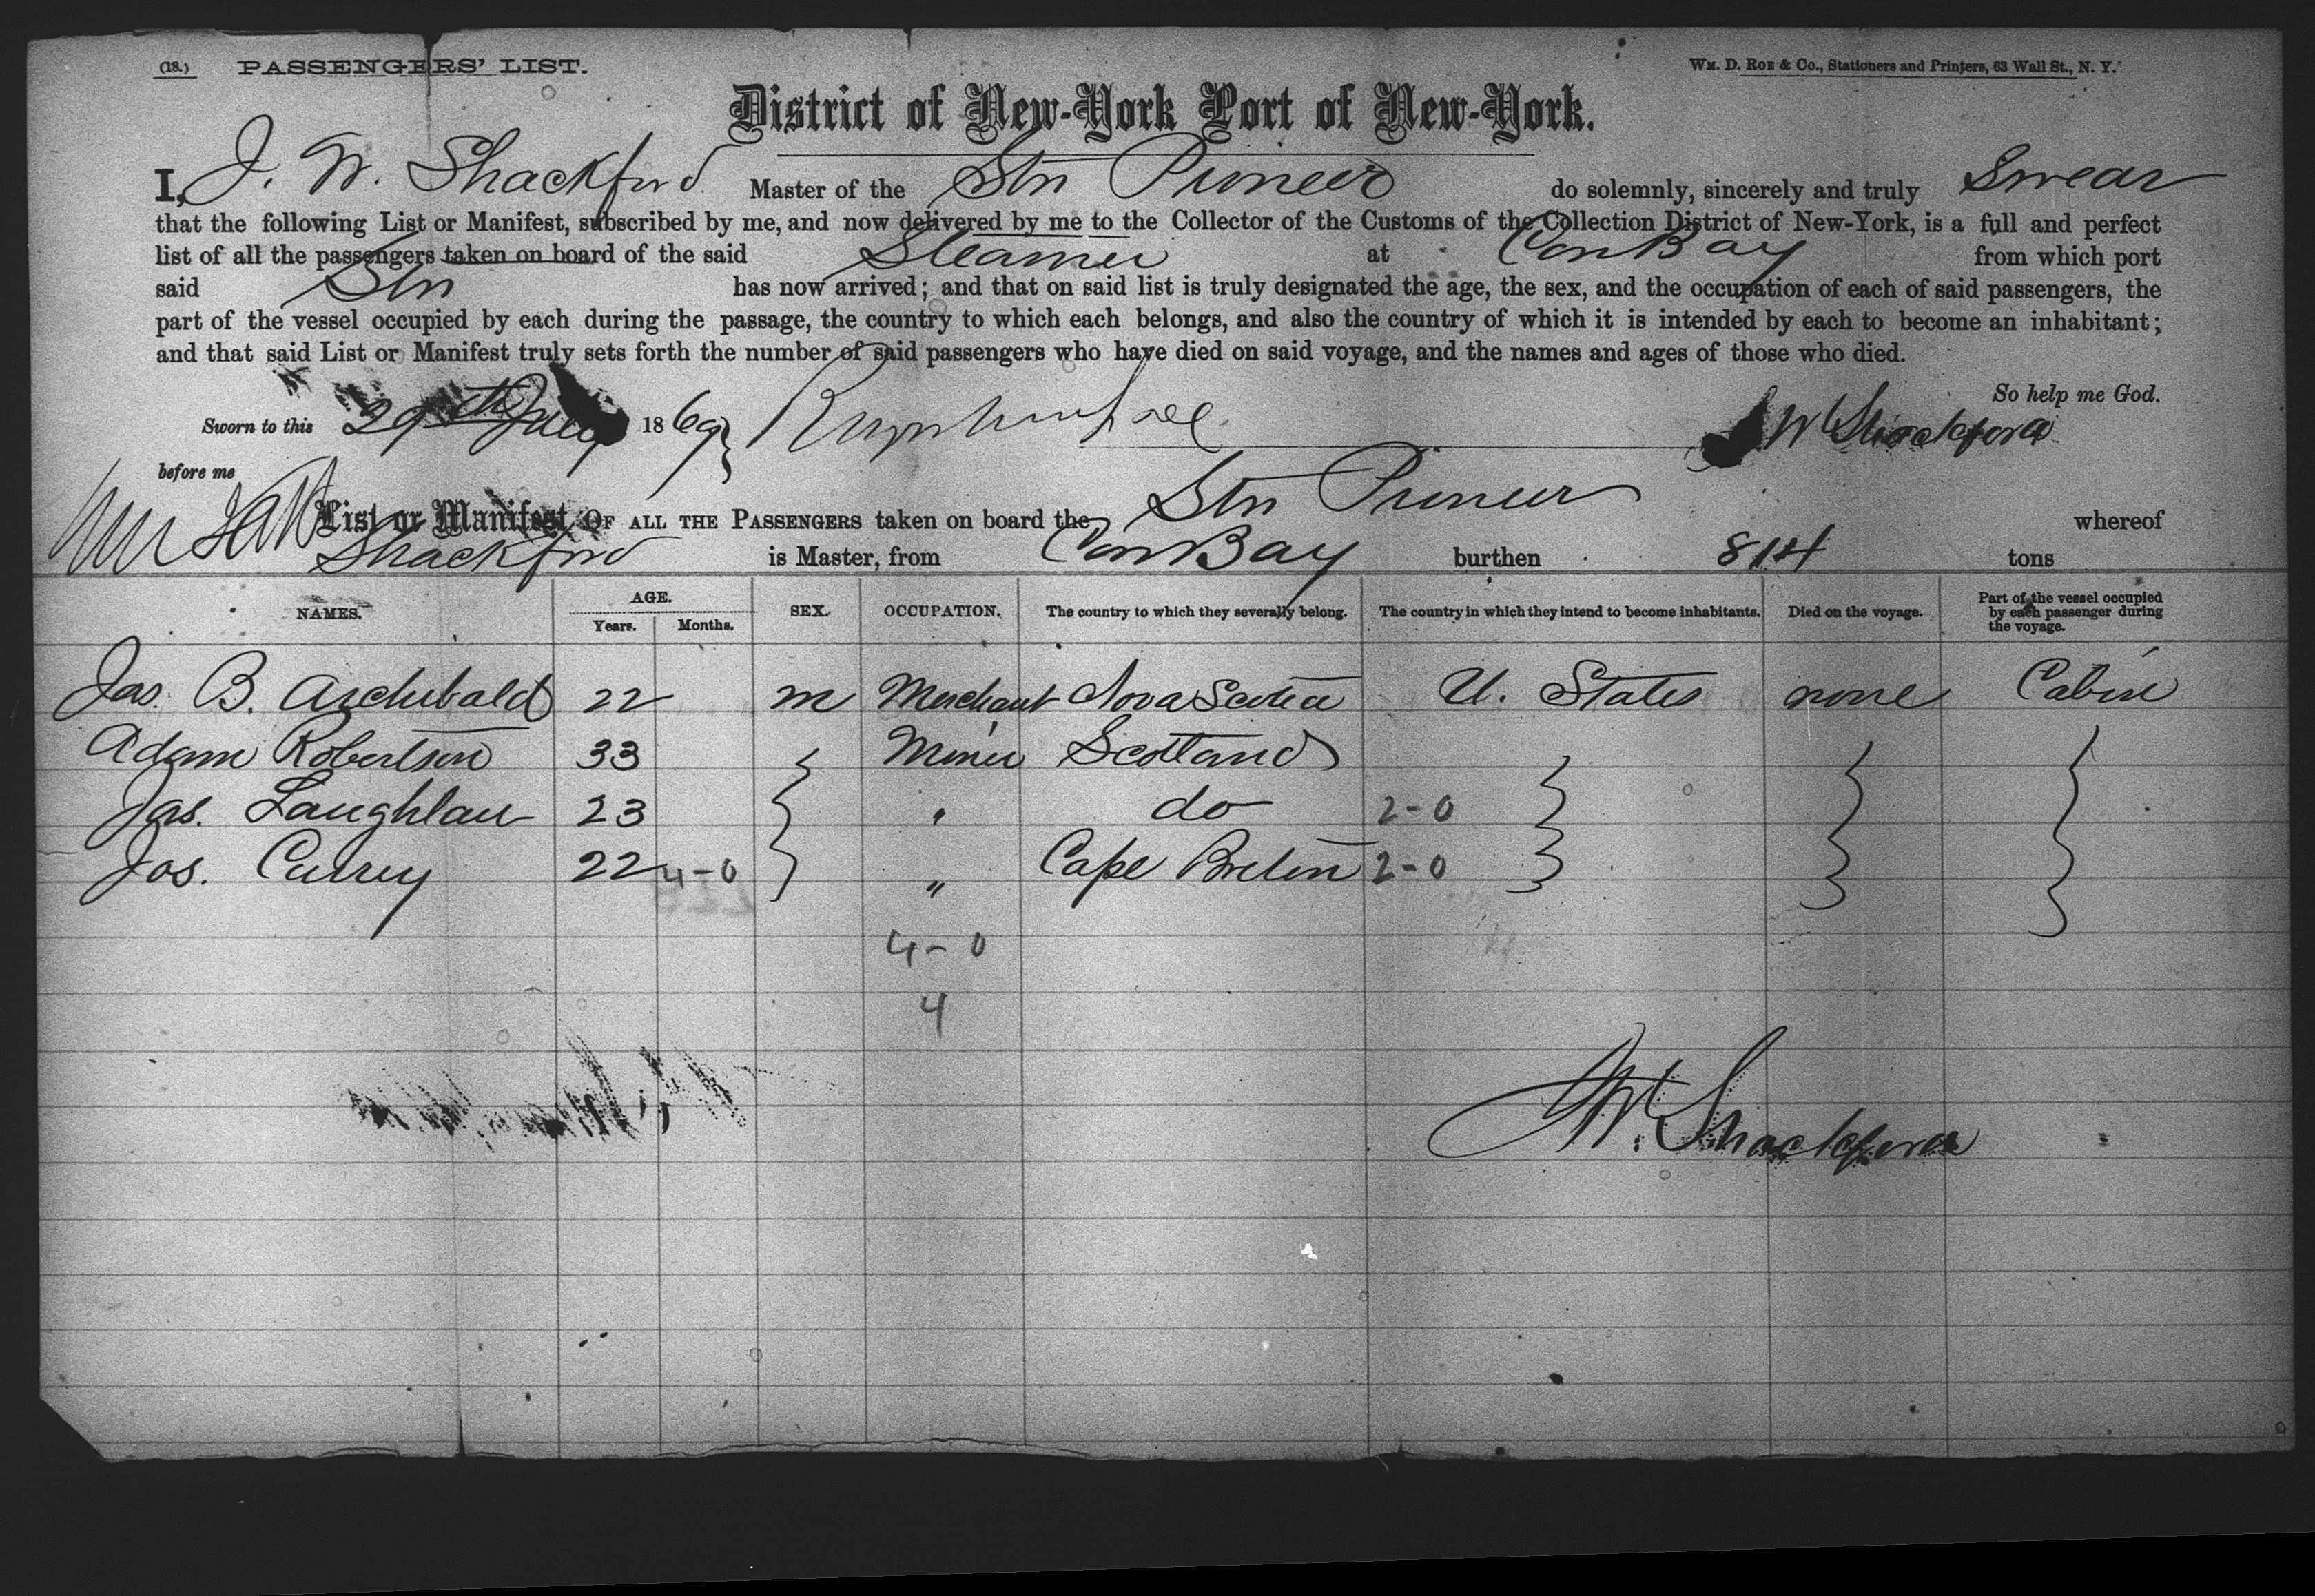 (18.) PASSENGERS' LIST.
Wm. D. Roe & Co., Stationers and Printers, 63 Wall St., N. Y.
District of New-York Port of New-York.
I, J. W. Shackford Master of the Str Pioneer do solemnly, sincerely and truly Swear
that the following List or Manifest, subscribed by me, and now delivered by me to the Collector of the Customs of the Collection District of New-York, is a full and perfect
list of all the passengers taken on board of the said Steamer at Cow Bay from which port
said Str has now arrived; and that on said list is truly designated the age, the sex, and the occupation of each of said passengers, the
part of the vessel occupied by each during the passage, the country to which each belongs, and also the country of which it is intended by each to become an inhabitant;
and that said List or Manifest truly sets forth the number of said passengers who have died on said voyage, and the names and ages of those who died.
So help me God.
Sworn to this 29th July 1869
J W Shackford
before me
List or Manifest OF ALL THE PASSENGERS taken on board the Str Pioneer whereof
Shackford is Master, from Cow Bay burthen 814 tons
NAMES. AGE. Years. Months. SEX. OCCUPATION. The country to which they severally belong. The country in which they intend to become inhabitants. Died on the voyage. Part of the vessel occupied by each passenger during the voyage.
Jas. B. Archibald 22 m Merchant Nova Scotia U. States none Cabin
Adam Robertson 33 Miner Scotland
Jas. Laughlan 23 " do 2-0
Jos. Currey 22 4-0 " Cape Breton 2-0
4-0
4
J W. Shackford